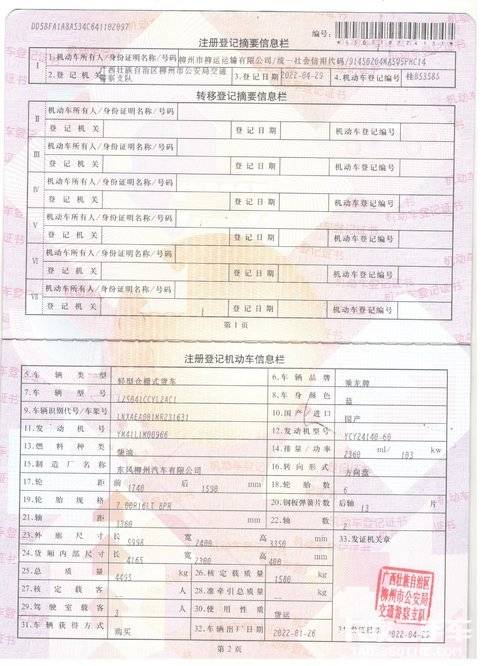 DD5BFA1A8A534C641102097
注册登记摘要信息栏
编号:
I
1.机动车所有人/身份证明名称/号码
柳州市柳运运输有限公司/统一社会信用代码/91450204MA5N5PHC14
2.登记机关
广西壮族自治区柳州市公安局交通警察支队
3.登记日期
2022-04-29
4.机动车登记编号
桂B53585
转移登记摘要信息栏
II
机动车所有人/身份证明名称/号码
登记机关
登记日期
机动车登记编号
III
机动车所有人/身份证明名称/号码
登记机关
登记日期
机动车登记编号
IV
机动车所有人/身份证明名称/号码
登记机关
登记日期
机动车登记编号
V
机动车所有人/身份证明名称/号码
登记机关
登记日期
机动车登记编号
VI
机动车所有人/身份证明名称/号码
登记机关
登记日期
机动车登记编号
VII
机动车所有人/身份证明名称/号码
登记机关
登记日期
机动车登记编号
第1页
注册登记机动车信息栏
5.车辆类型
轻型仓栅式货车
6.车辆品牌
乘龙牌
7.车辆型号
LZ5041CCYL2AC1
8.车身颜色
蓝
9.车辆识别代号/车架号
LNXAEA001MR231631
10.国产/进口
国产
11.发动机号
YK41L1M00966
12.发动机型号
YCY24140-60
13.燃料种类
柴油
14.排量/功率
2360 ml/ 103 kw
15.制造厂名称
东风柳州汽车有限公司
16.转向形式
方向盘
17.轮距
前 1740 后 1590 mm
18.轮胎数
6
19.轮胎规格
7.00R16LT 8PR
20.钢板弹簧片数
后轴 13 片
21.轴距
3360 mm
22.轴数
2
23.外廓尺寸
长 5998 宽 2400 高 3350 mm
33.发证机关章
24.货厢内部尺寸
长 4165 宽 2300 高 400 mm
25.总质量
4495 kg
26.核定载质量
1580 kg
27.核定载客
人
28.准牵引总质量
kg
29.驾驶室载客
3 人
30.使用性质
货运
31.车辆获得方式
购买
32.车辆出厂日期
2022-01-26
34.发证日期
2022-04-29
广西壮族自治区
柳州市公安局
交通警察支队
第2页